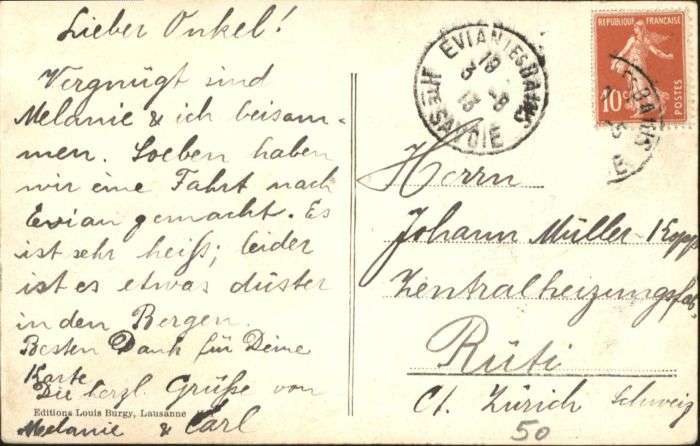 Lieber Onkel!
Vergnügt sind
Melanie & ich beisam-
men. Soeben haben
wir eine Fahrt nach
Evian gemacht. Es
ist sehr heiß; leider
ist es etwas düster
in den Bergen.
Besten Dank für Deine
Karte
Die herzl. Grüße von
Editions Louis Burgy, Lausanne
Melanie & Carl
EVIAN LES BAINS
18
3 -8
13
HTE SAVOIE
REPUBLIQUE FRANÇAISE
10c
POSTES
Herrn
Johann Müller-Kopp
Zentralheizungsfab.
Rüti
Ct. Zürich Schweiz
50